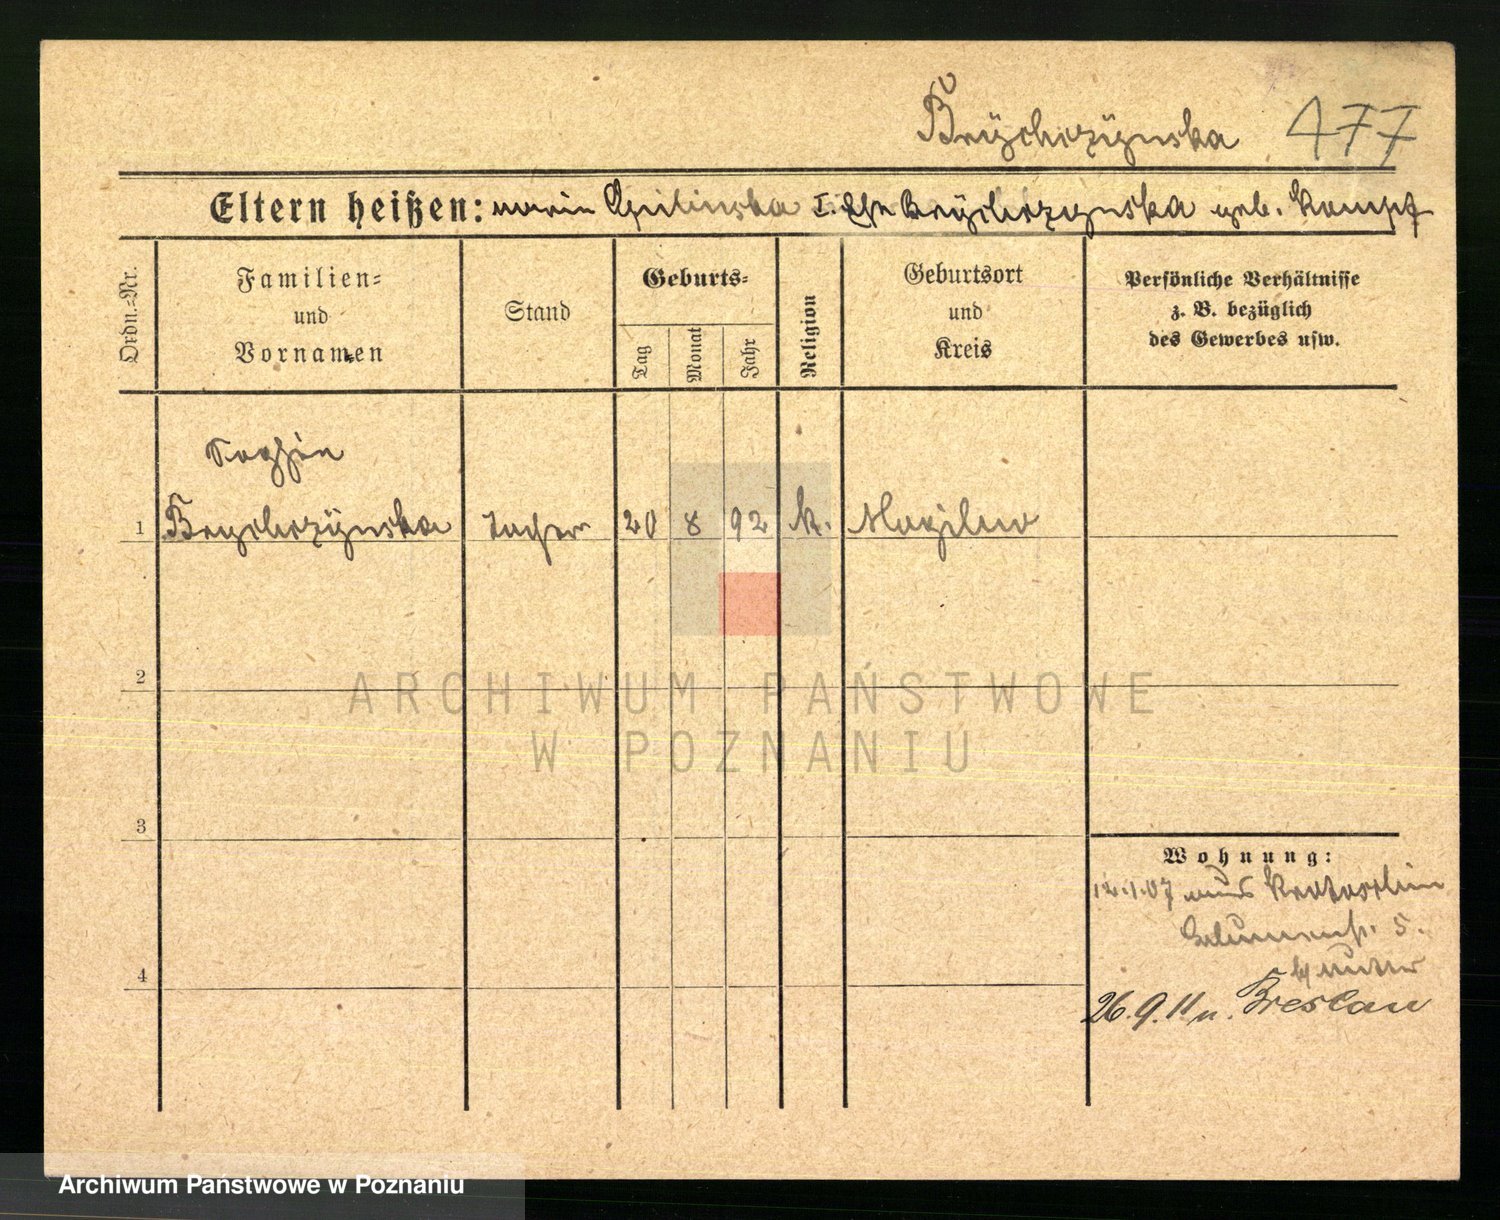 Brÿcherzÿnska 477
Eltern heißen: Marie I. Ehe Brÿcherzynska geb. Kempf
Ordn.=Nr.
Familien=
und
Vornamen
Stand
Geburts=
Tag
Monat
Jahr
Religion
Geburtsort
und
Kreis
Persönliche Verhältnisse
z. B. bezüglich
des Gewerbes usw.
Sophie
1 Brycherzÿnska Tochter 20 8 92 k. Mogilno
2
ARCHIWUM PAŃSTWOWE
W POZNANIU
3
Wohnung:
12.1.07 aus Krotoschin
Blumenstr. 5.
b/ Mutter
4
26.9.11 n. Breslau
Archiwum Państwowe w Poznaniu